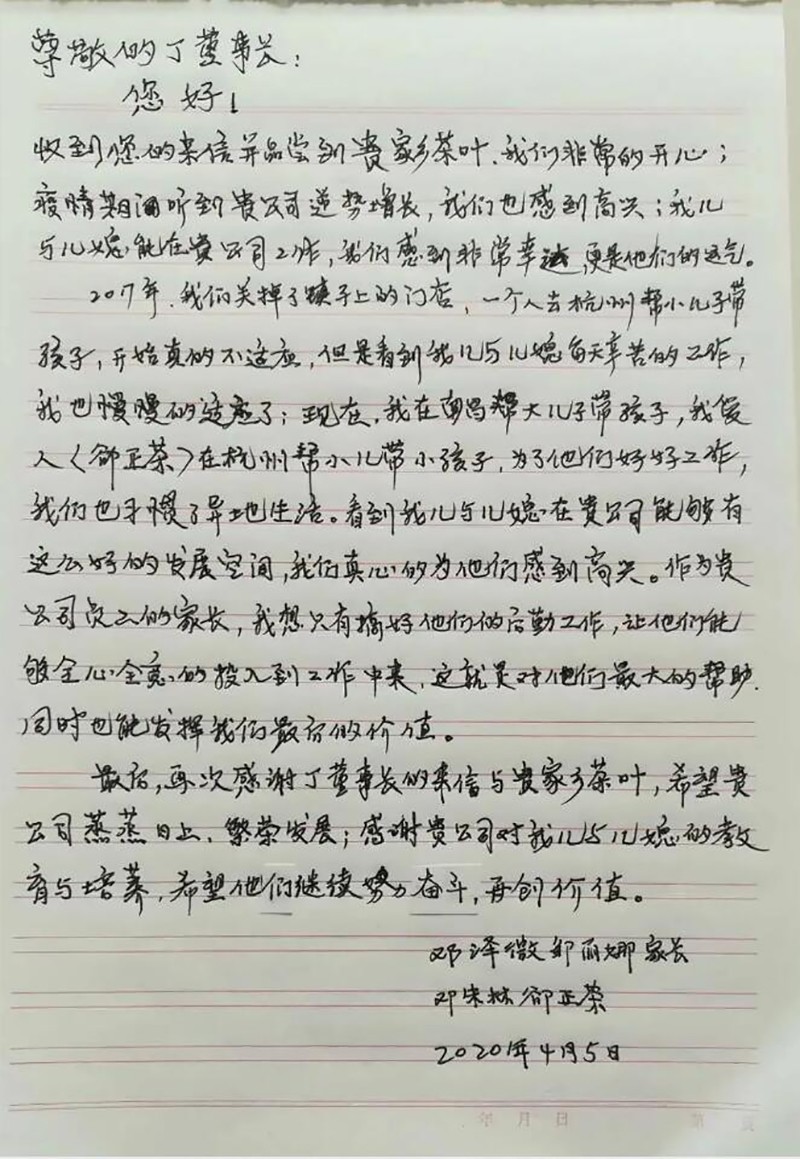 尊敬的丁董事长：
您好！
收到您的来信并品尝到贵家乡茶叶、我们非常的开心；
疫情期间听到贵公司逆势增长，我们也感到高兴；我儿
与儿媳能在贵公司工作，我们感到非常幸运，更是他们的运气。
2017年、我们关掉了镇子上的门店，一个人去杭州帮小儿子带
孩子，开始真的不适应，但是看到我儿与儿媳每天辛苦的工作，
我也慢慢的适应了；现在，我在南昌帮大儿子带孩子，我爱
人〈邻正荣〉在杭州帮小儿带小孩子，为了他们好好工作，
我们也习惯了异地生活。看到我儿与儿媳在贵公司能够有
这么好的发展空间，我们真心的为他们感到高兴。作为贵
公司员工的家长，我想只有搞好他们的后勤工作，让他们能
够全心全意的投入到工作中来，这就是对他们最大的帮助.
同时也能发挥我们最后的价值。
最后，再次感谢丁董事长的来信与贵家乡茶叶，希望贵
公司蒸蒸日上、繁荣发展；感谢贵公司对我儿与儿媳的教
育与培养，希望他们继续努力奋斗，再创价值。
邓泽微 丽娜家长
邓 林 正荣
2020年4月5日
年 月 日 第 页